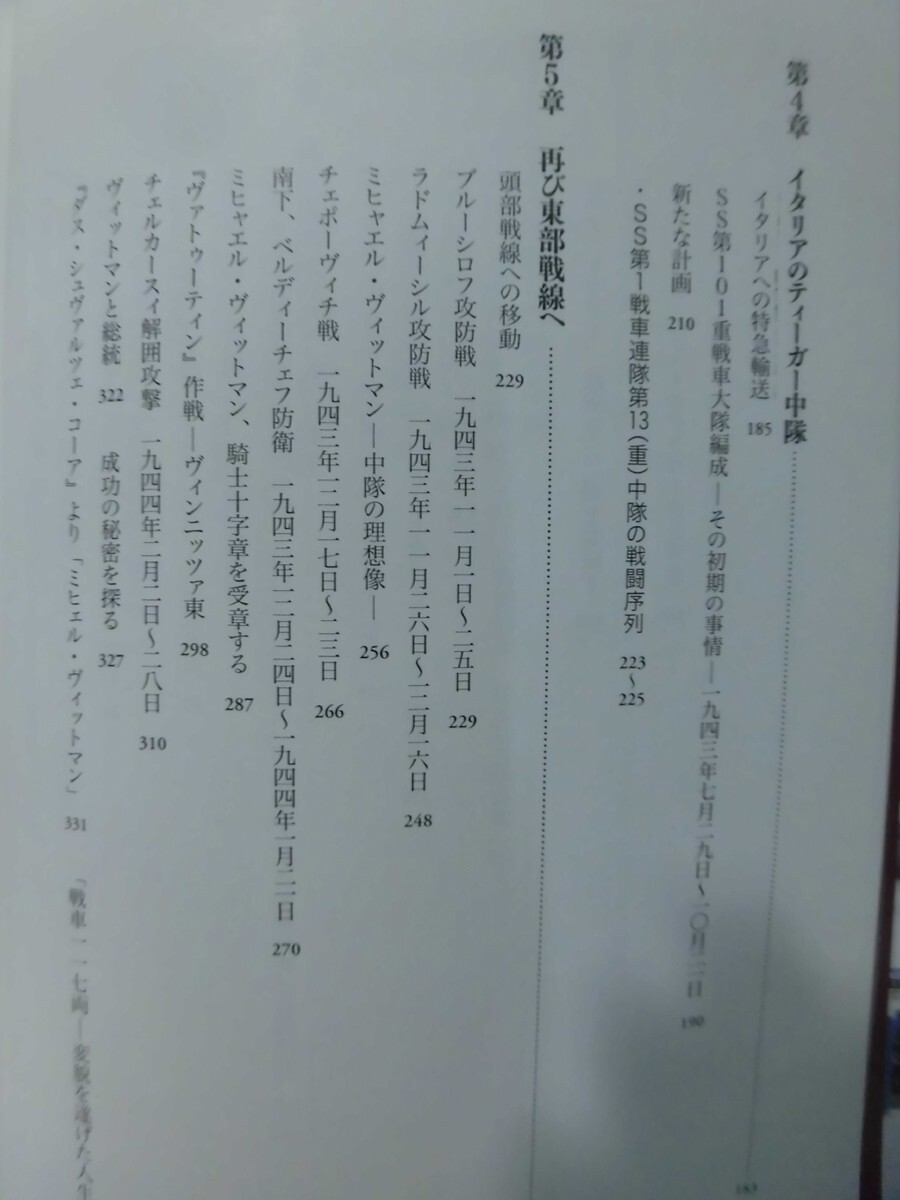 第4章 イタリアのティーガー中隊………………183
イタリアへの特急輸送 185
SS第101重戦車大隊編成―その初期の事情―一九四三年七月二九日〜一〇月二一日 190
新たな計画 210
・SS第1戦車連隊第13(重)中隊の戦闘序列 223〜225
第5章 再び東部戦線へ………………
頭部戦線への移動 229
ブルーシロフ攻防戦 一九四三年一一月一日〜二五日 229
ラドムィーシル攻防戦 一九四三年一一月二六日〜一二月一六日 248
ミヒャエル・ヴィットマン―中隊の理想像― 256
チェポーヴィチ戦 一九四三年一二月一七日〜二三日 266
南下、ベルディーチェフ防衛 一九四三年一二月二四日〜一九四四年一月二一日 270
ミヒャエル・ヴィットマン、騎士十字章を受章する 287
『ヴァトゥーティン』作戦―ヴィンニッツァ東 298
チェルカースィ解囲攻撃 一九四四年二月二日〜二八日 310
ヴィットマンと総統 322 成功の秘密を探る 327
『ダス・シュヴァルツェ・コーア』より「ミヒェル・ヴィットマン」 331 「戦車一一七両―変貌を遂げた人生